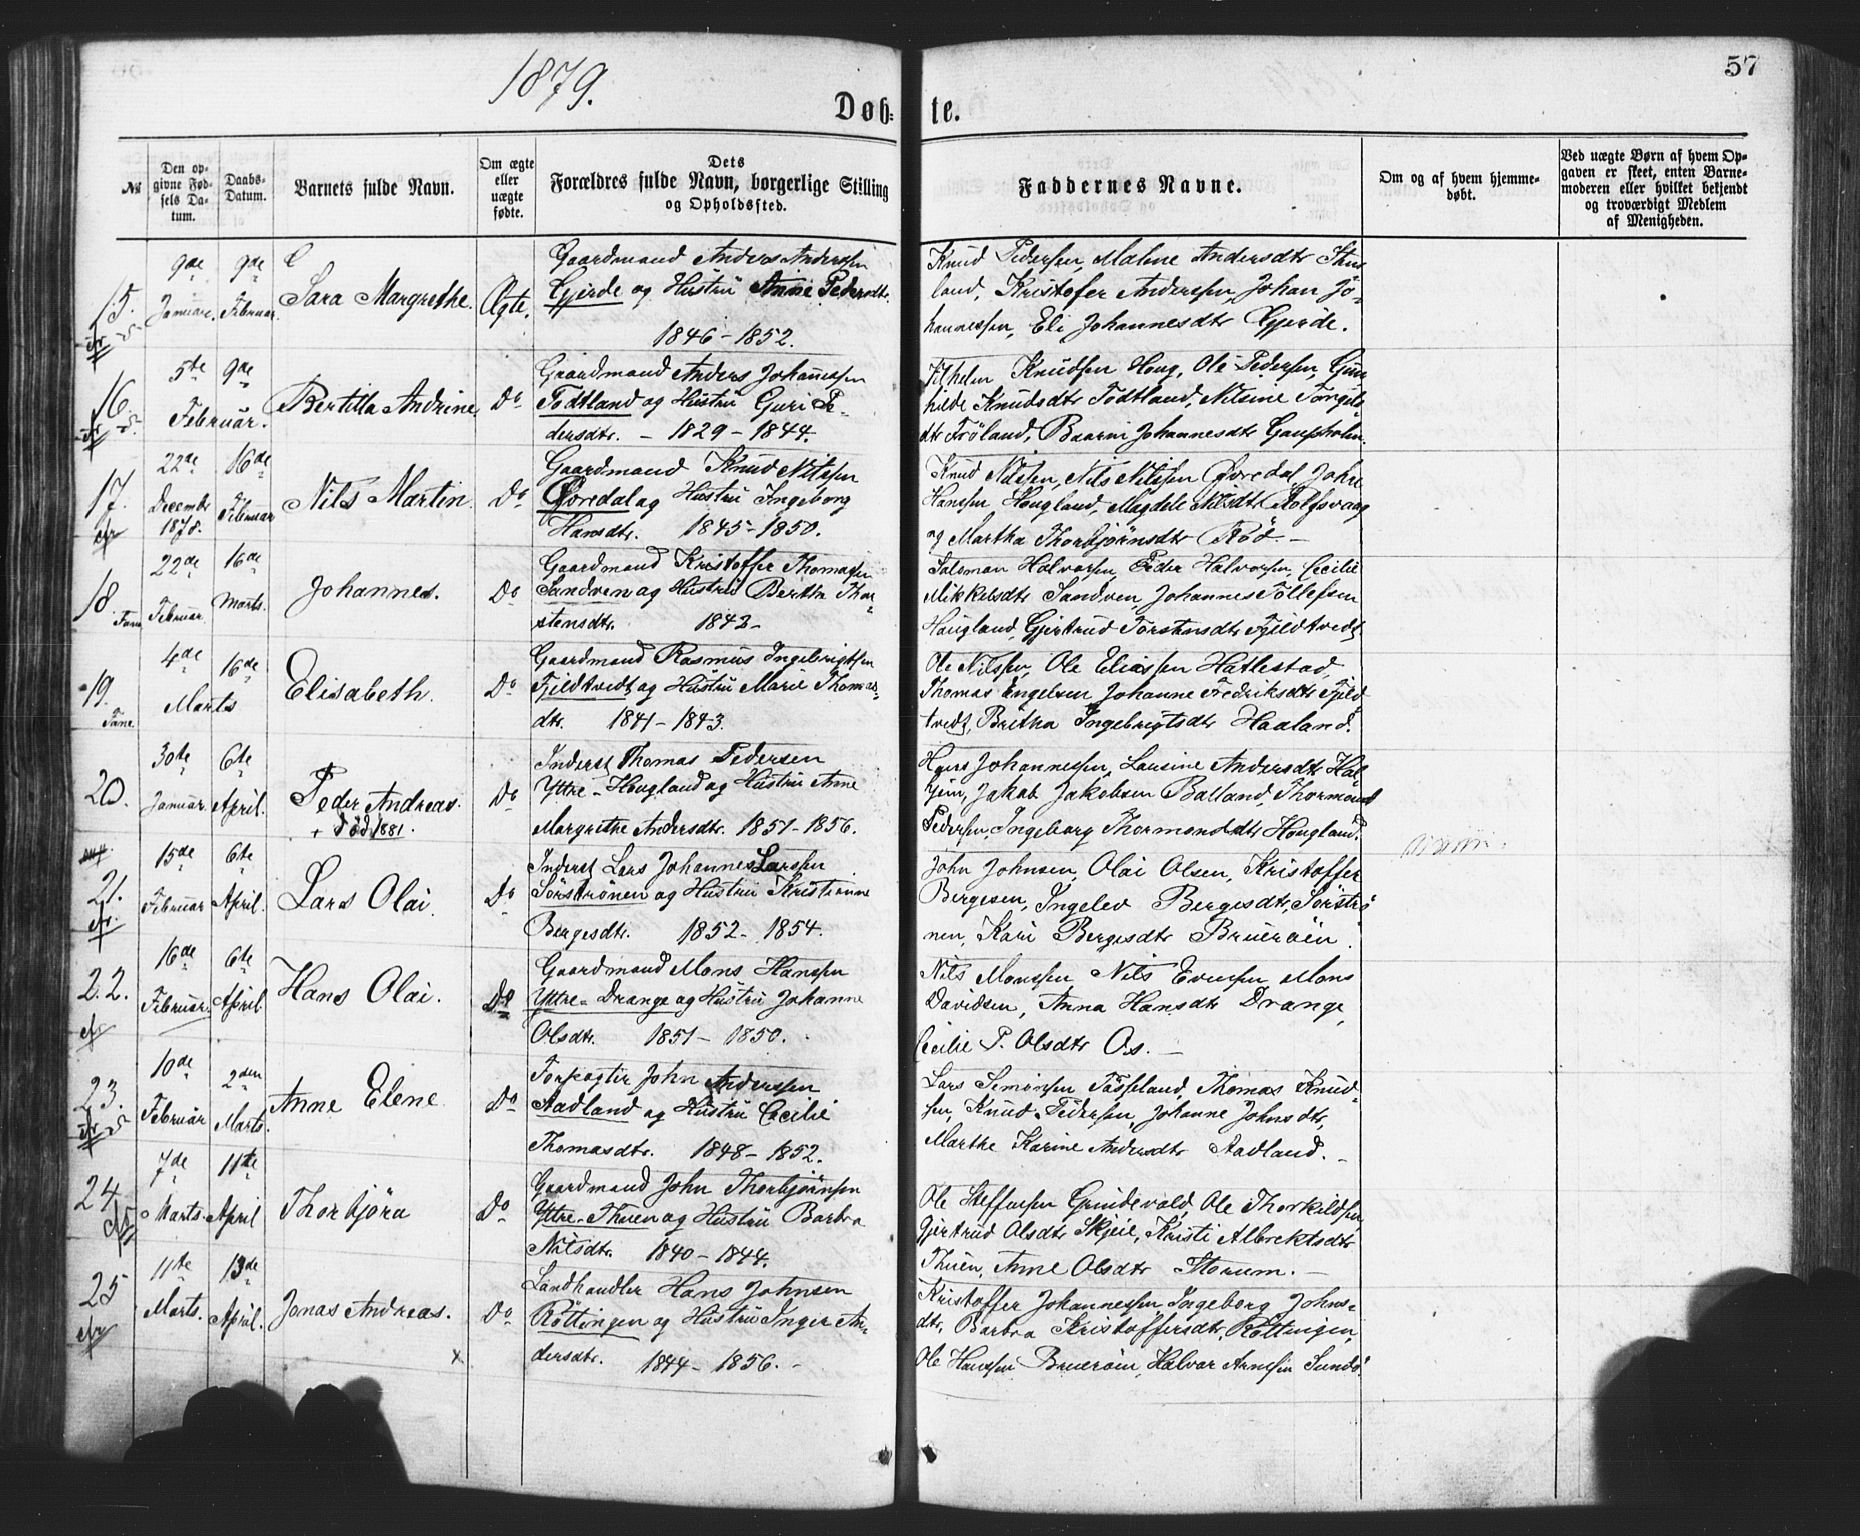 1879.
57
Døb-
te.
№
Den op-
givne Fød-
sels Da-
tum.
Daabs-
Datum.
Barnets fulde Navn.
Om ægte
eller
uægte
fødte.
Dets
Forældres fulde Navn, borgerlige Stilling
og Opholdssted.
Faddernes Navne.
Om og af hvem hjemme-
døbt.
Ved uægte Børn af hvem Op-
gaven er skeet, enten Barne-
moderen eller hvilket bekjendt
og troværdigt Medlem
af Menigheden.
15.
9de
Januar.
9de
Februar
Sara Margrethe.
Ægte.
Gaardmand Anders Anderssen
Gjerde og Hustru Anne Pedersdtr.
1846 - 1852.
Knud Pederssen, Malene Andersdtr
land, Kristofer Anderssen, Johan Jo-
hannessen, Eli Johannesdtr Gjerde.
16.
5te
Februar.
9de
Bertilla Andrine
Do
Gaardmand Anders Johannessen
Tødtland og Hustru Guri Pe-
dersdtr. - 1829 - 1844.
Vilhelm Knudsen Houg, Ole Pederssen, Gun-
hilde Knudsdtr Tødtland, Nilsine
dtr Frøland, Johannesdtr Gaupholm
17.
22de
December
1878.
16de
Februar
Nils Martin
Do
Gaardmand Knud Nilssen
Øvredal og Hustru Ingeborg
Hansdtr. 1845 - 1850.
Knud Nilssen, Nils Nilssen Øvredal, John
Hanssen Hougland, Magdele Nilsdtr Rolfsvaag
og Martha Thorbjørnsdtr Rød -
18.
Fane
22de
Februar
16de
Marts.
Johannes.
Do
Gaardmand Kristoffer Thomassen
Sandven og Hustru Bertha Thor-
stensdtr. 1843 -
Salomon Halvorsen, Peder Halvorsen, Cecilie
Mikkelsdtr Sandven, Johannes Tollefsen
Hougland, Gjertrud Torstensdtr Fjeldtvedt
19.
Fane.
4de
Marts
16de
Elisabeth.
Do
Gaardmand Rasmus Ingebrigtsen
Fjeldtvedt og Hustru Marie Thomas-
dtr. 1841 - 1843.
Ole Nilssen, Ole Eliassen Hatlestad,
Thomas Engelsen, Johanne Fredriksdtr Fjeld-
tvedt, Britha Ingebrigtsdtr Haaland.
20.
30te
Januar.
6te
April.
Peder Andreas.
+ Død 1881.
Do
Inderst Thomas Pedersen
Yttre-Hougland og Hustru Anne
Margrethe Andersdtr. 1851 - 1856.
Hans Johannessen, Lausine Andersdtr Hal-
jem, Jakob Jakobsen Balland, Thormod
Pedersen, Ingeborg Thormodsdtr Hougland.
21.
15de
Februar
6te
April.
Lars Olai.
Do
Inderst Lars Johannes Larssen
Sørstrønen og Hustru Kristianne
Bergesdtr. 1852 - 1854.
John Johnsen, Olai Olsen, Kristoffer
Bergesen, Ingelev Bergesdtr, Sørstrø-
nen, Kari Bergesdtr Bruerøen.
22.
16de
Februar.
6te
April
Hans Olai.
Do
Gaardmand Mons Hanssen
Yttre-Drange og Hustru Johanne
Olsdtr. 1851 - 1850.
Nils Monssen, Nils Evensen, Mons
Davidsen, Anna Hansdtr Drange,
Cecilie P. Olsdtr Os. -
23.
10de
Februar
2den
Marts.
Anne Elene
Do
Forpagter John Anderssen
Aadland og Hustru Cecilie
Thomasdtr. 1848 - 1852.
Lars Simonsen Tøsseland, Thomas Knud-
sen, Knud Pederssen, Johanne Johnsdtr,
Marthe Karine Andersdtr Aadland. -
24.
7de
Marts
11te
April
Thorbjørn
Do
Gaardmand John Thorbjørnsen
Yttre-Thuen og Hustru Barbra
Nilsdtr. 1840 - 1844.
Ole Steffensen Grindevold, Ole Thorkildsen
Gjertrud Olsdtr Skjeie, Kristi Albrektsdtr
Thuen, Anne Olsdtr Storum. -
25
11te
Marts.
13de
April.
Jonas Andreas.
Do
Landhandler Hans Johnsen
Røttingen og Hustru Inger An-
dersdtr. 1844 - 1856. -
Kristoffer Johannessen, Ingeborg Johns-
dtr, Barbra Kristoffersdtr, Røttingen,
Ole Hanssen Bruerøen, Halvor Arnesen Sundø.
x